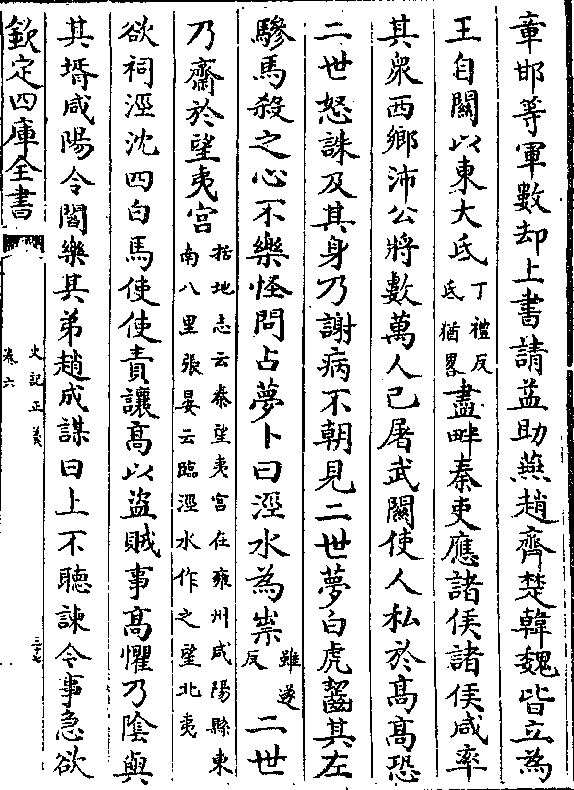 章邯等軍數却上書請益助燕趙齊楚韓魏皆立為
王自關以東大氐丁禮反氐猶畧盡畔秦吏應諸侯諸侯咸率
其衆西鄉沛公將數萬人已屠武關使人私於高高恐
二世怒誅及其身乃謝病不朝見二世夢白虎齧其左
驂馬殺之心不樂怪問占夢卜曰涇水為祟雖遂反二世
乃齋於望夷宮括地志云秦望夷宮在雍州咸陽縣東南八里張晏云臨涇水作之望北夷
欲祠涇沈四白馬使使責讓高以盜賊事高懼乃陰與
其壻咸陽令閻樂其弟趙成謀曰上不聽諫今事急欲
欽定四庫全書
史記正義
卷六
三十七